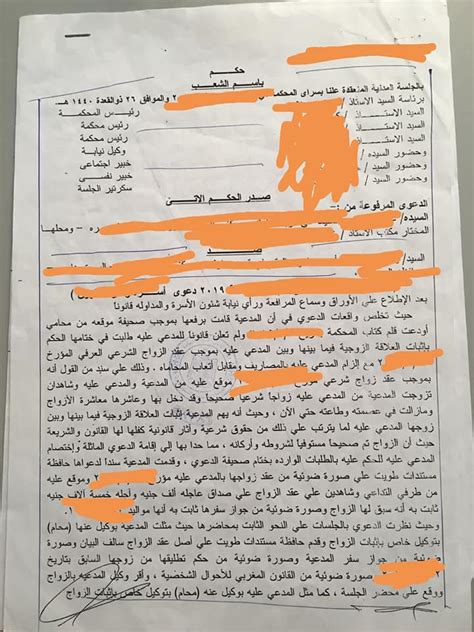 حكم
باسم الشعب
بالجلسة المدنية المنعقدة علنا بسراى المحكمة والموافق ٢٦ ذوالقعدة ١٤٤٠ هـ
برئاسة السيد الاستاذ / رئيس المحكمة
السيد الاستاذ رئيس محكمة
السيد الاستاذ رئيس محكمة
السيد الاستاذ وكيل نيابة
وحضور السيده / خبير اجتماعى
وحضور السيد / خبير نفسى
وحضور السيد / سكرتير الجلسة
صدر الحكم الاتى
الدعوى المرفوعة من :-
السيده/ - ومحلها
المختار مكتب الاستاذ
ضد
السيد/
٢٠١٩ دعوى
بعد الإطلاع على الأوراق وسماع المرافعة ورأي نيابة شئون الأسرة والمداوله قانونا
حيث تخلص واقعات الدعوي في أن المدعية قامت برفعها بموجب صحيفة موقعه من محامي
أودعت قلم كتاب المحكمة ولم تعلن قانونا للمدعي عليه طالبت في ختامها الحكم
بإثبات العلاقة الزوجية فيما بينها وبين المدعي عليه بموجب عقد الزواج الشرعي العرفي المؤرخ
مع إلزام المدعي عليه بالمصاريف ومقابل أتعاب المحاماه . وذلك علي سند من القول أنه
بموجب عقد زواج شرعي موقع عليه من المدعية والمدعي عليه وشاهدان
تزوجت المدعية من المدعي عليه زواجا شرعيا صحيحا وقد دخل بها وعاشرها معاشرة الأزواج
ومازالت في عصمته وطاعته حتي الأن ، وحيث أنه يهم المدعية إثبات العلاقة الزوجية فيما بينها وبين
زوجها المدعي عليه لما يترتب علي ذلك من حقوق شرعية وأثار قانونية كفلها لها القانون والشريعة
حيث أن الزواج تم صحيحا مستوفيا لشروطه وأركانه ، مما حدا بها إلي إقامة الدعوي الماثلة وإختصام
المدعي عليه للحكم عليه بالطلبات الوارده بختام صحيفة الدعوي ، وقدمت المدعية سندا لدعواها حافظة
مستندات طويت علي صورة ضوئية من عقد زواجها بالمدعي عليه مؤرخ وموقع عليه
من طرفي التداعي وشاهدين علي عقد الزواج علي صداق عاجله ألف جنيه وأجله خمسة ألاف جنيه
ثابت به أنه سبق لها الزواج وصورة ضوئية من جواز سفرها ثابت به أنها مواليد
وحيث نظرت الدعوي بالجلسات علي النحو الثابت بمحاضرها حيث مثلت المدعيه بوكيل عنها (محام)
بتوكيل خاص بإثبات الزواج وقدم حافظة مستندات طويت علي أصل عقد الزواج سالف البيان وصورة
ضوئية من جواز سفر المدعية وصورة ضوئية من حكم تطليقها من زوجها السابق بتاريخ
صورة ضوئية من القانون المغربي للأحوال الشخصية ، وأقر وكيل المدعيه بالزواج
ووقع علي محضر الجلسة ، كما مثل المدعي عليه بوكيل عنه (محام) بتوكيل خاص بإثبات الزواج